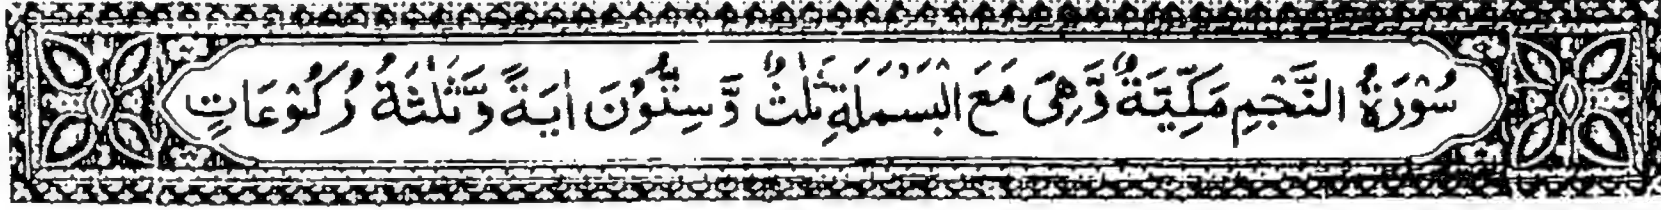 سُوْرَةُ النَّجْمِ مَكِّيَّةٌ وَّهِىَ مَعَ الْبَسْمَلَةِ ثَلٰثٌ وَّ سِتُّوْنَ اٰيَةً وَّثَلٰثَةُ رُكُوْعَاتٍ